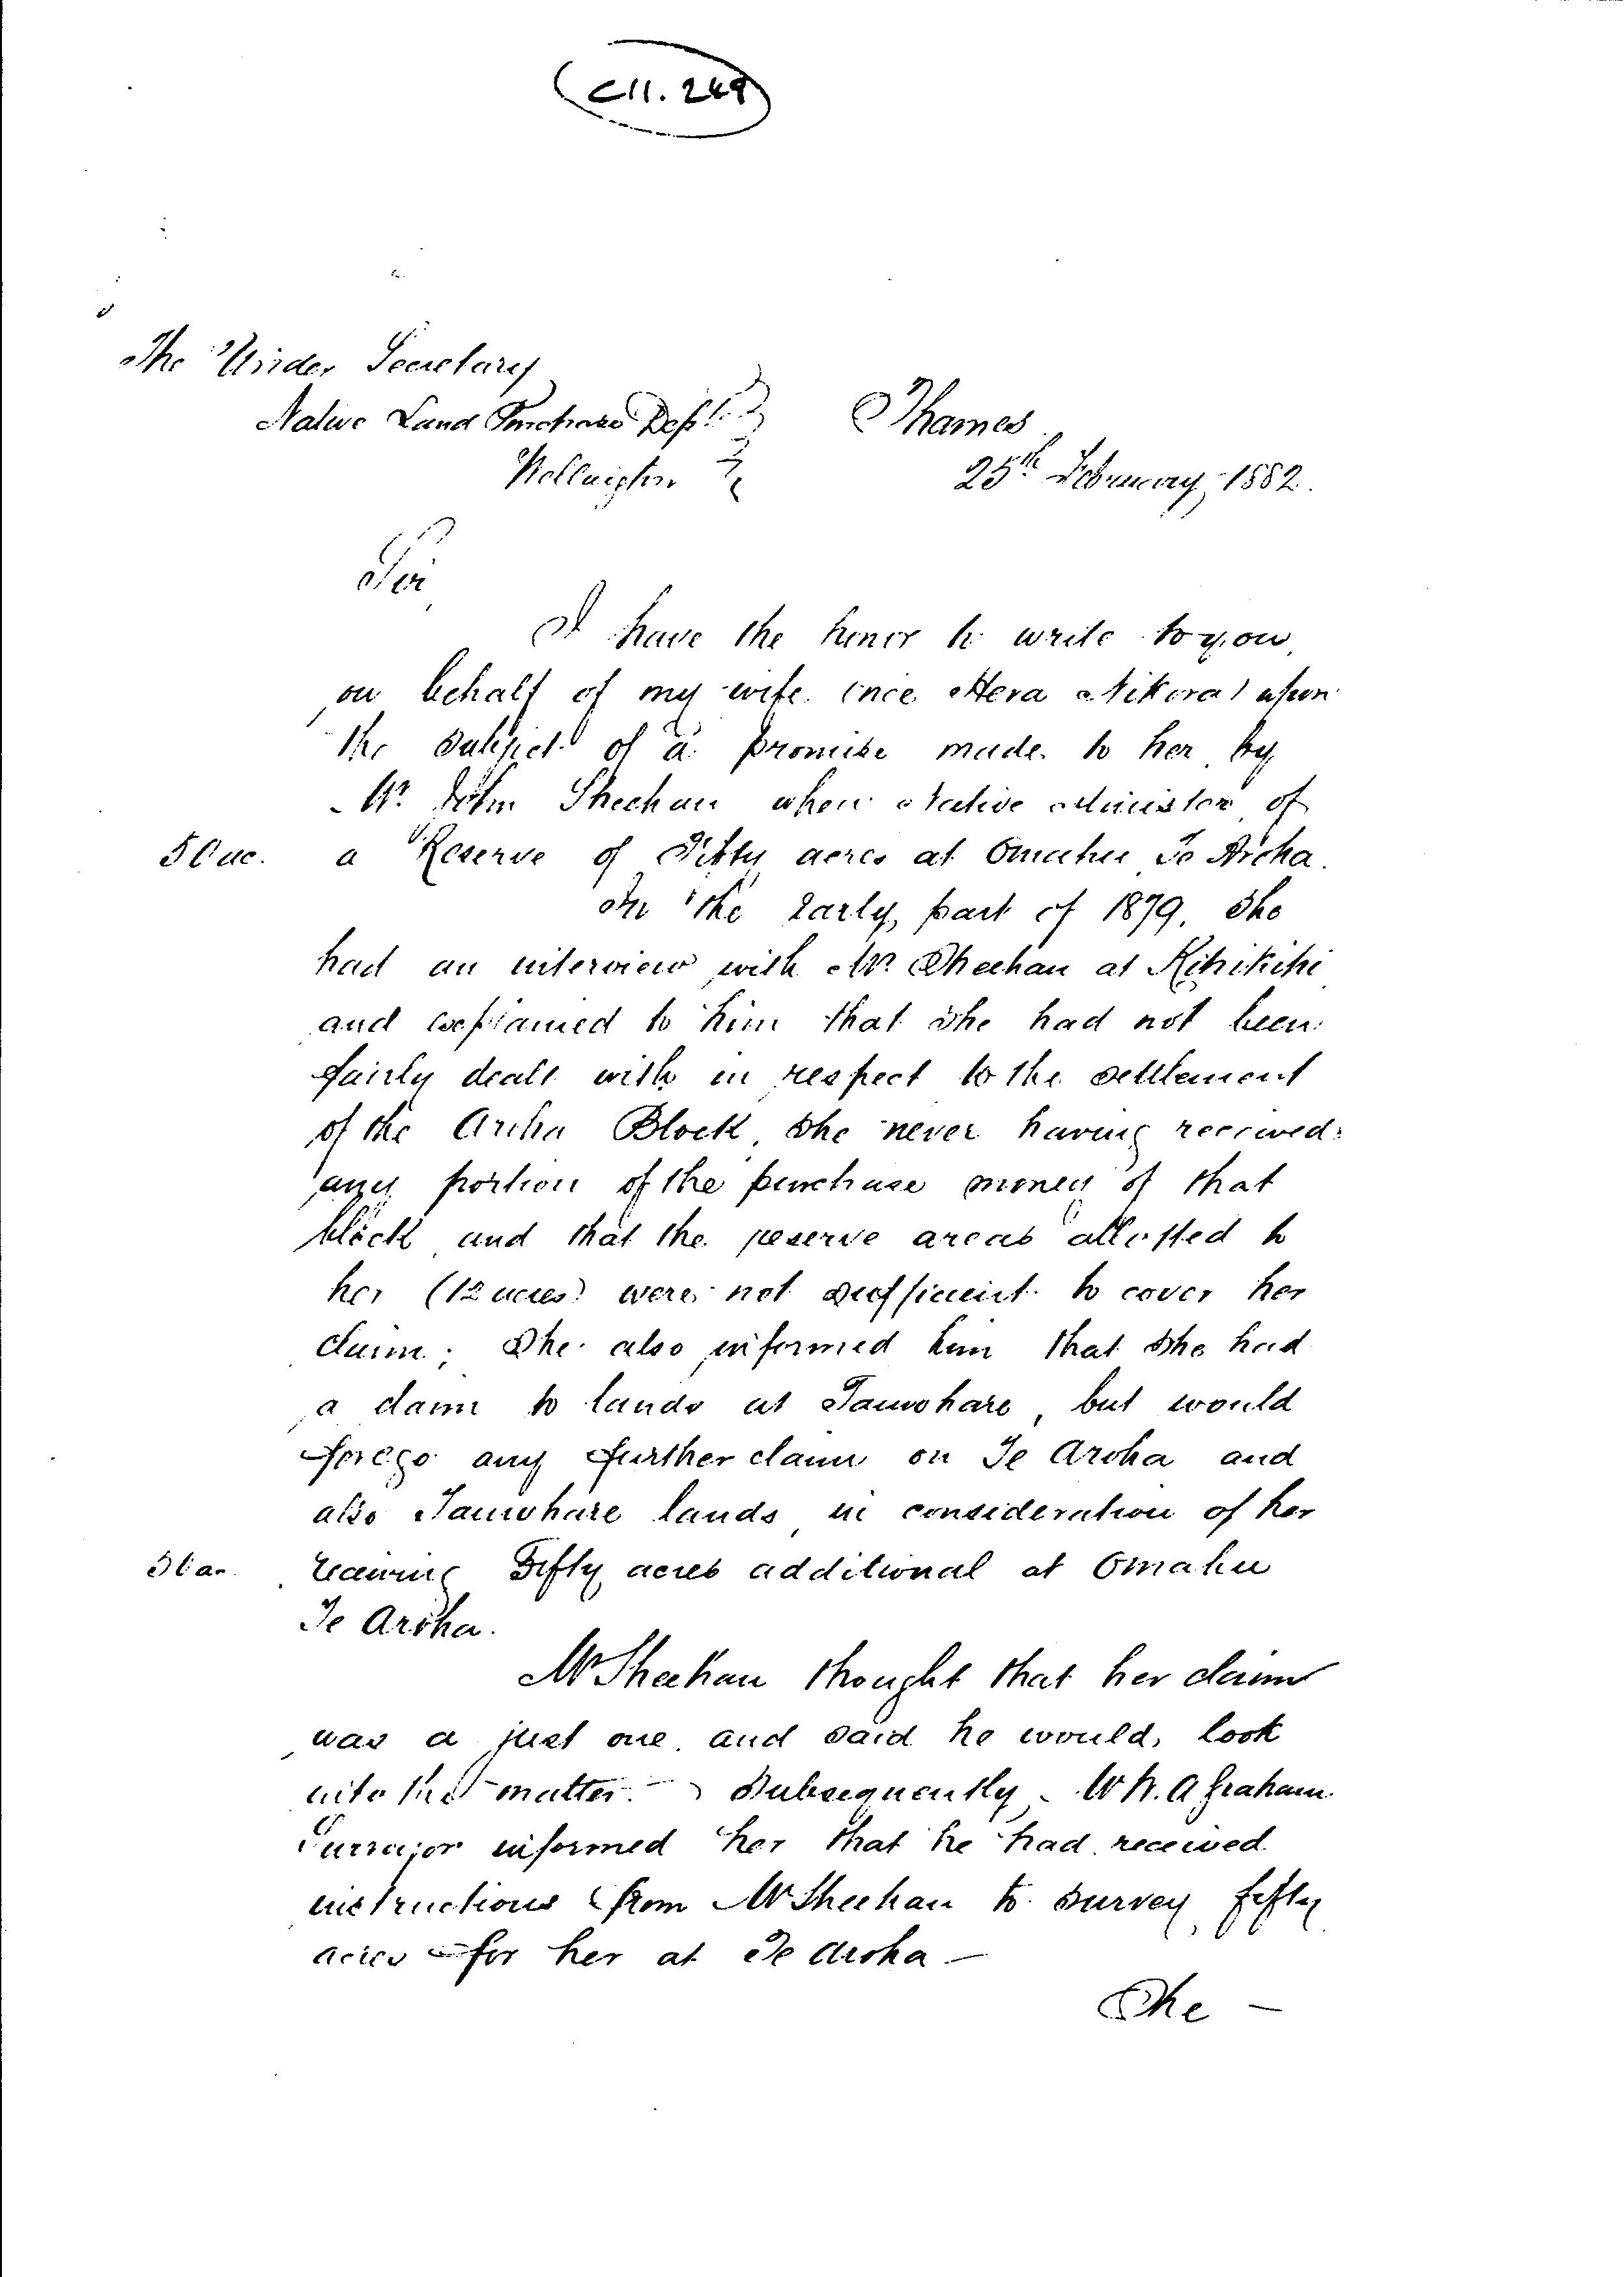 C11.249
The Under Secretary
Native Land Purchase Dept.
Wellington
Thames
25th February, 1882.
Sir
I have the honor to write to you
on behalf of my wife (nee Hera Nikora) upon
the subject of a promise made to her by
Mr. John Sheehan when Native Minister of
50 ac. a Reserve of Fifty acres at Omahu Te Aroha.
In the early part of 1879 She
had an interview with Mr. Sheehan at Kihikihi
and explained to him that she had not been
fairly dealt with in respect to the settlement
of the Aroha Block, she never having received
any portion of the purchase money of that
block and that the reserve areas allotted to
her (12 acres) were not sufficient to cover her
claim; She also informed him that she had
a claim to lands at Tauwhare, but would
forego any further claim on Te Aroha and
also Tauwhare lands in consideration of her
receiving Fifty acres additional at Omahu
Te Aroha.
Mr Sheehan thought that her claim
was a just one and said he would, look
into the matter. Subsequently W N. A Graham
Surveyor informed her that he had received
instructions from Mr Sheehan to survey fifty
acres for her at Te Aroha —
She —